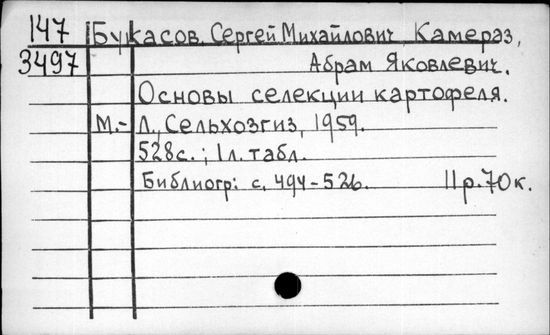 147 Букасов, Сергей Михайлович Камераз,
3497 Абрам Яковлевич.
Основы селекции картофеля.
М.- Л., Сельхозгиз, 1959.
528с.; 1л. табл.
Библиогр: с. 494-526. 11р.70к.